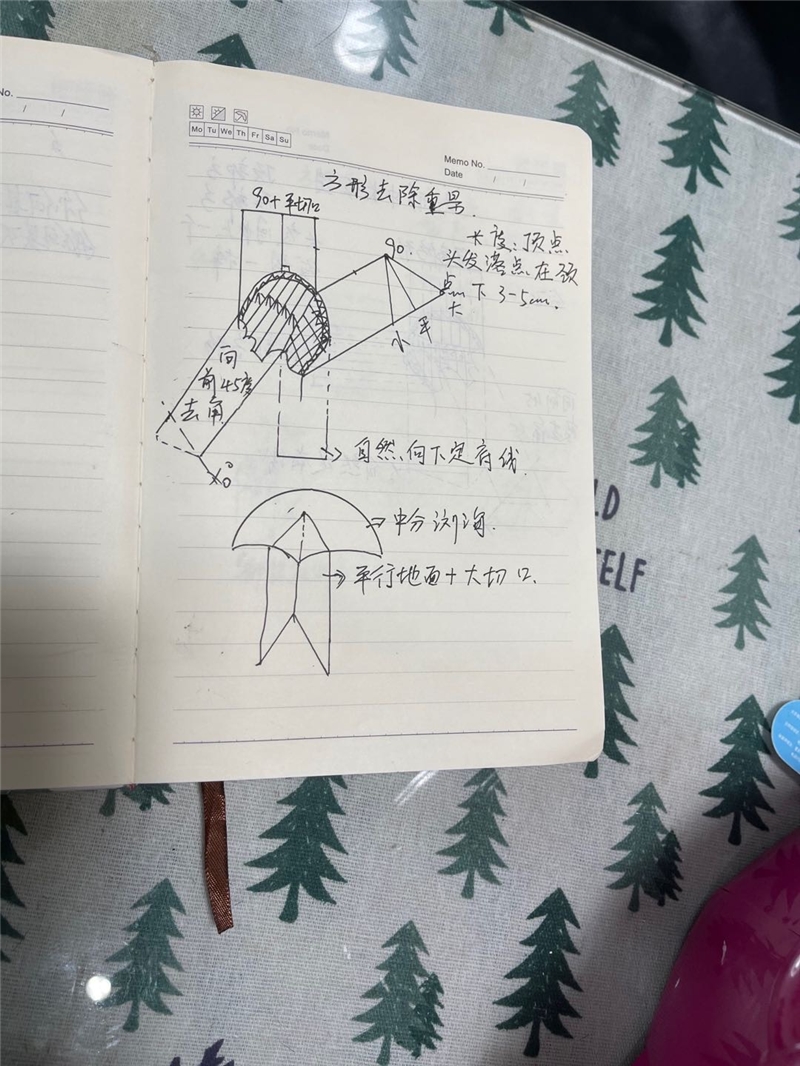 No.
/ /
Mo Tu We Th Fr Sa Su
Memo No.
Date / /
方形去除重量.
90+平切口
90.
长度:顶点
头发落点在颈
点 下3-5cm.
大
小 平
向
前45度
去角
0°
自然向下定府线
中分浏海.
平行地面+大切口.
LD
ELF